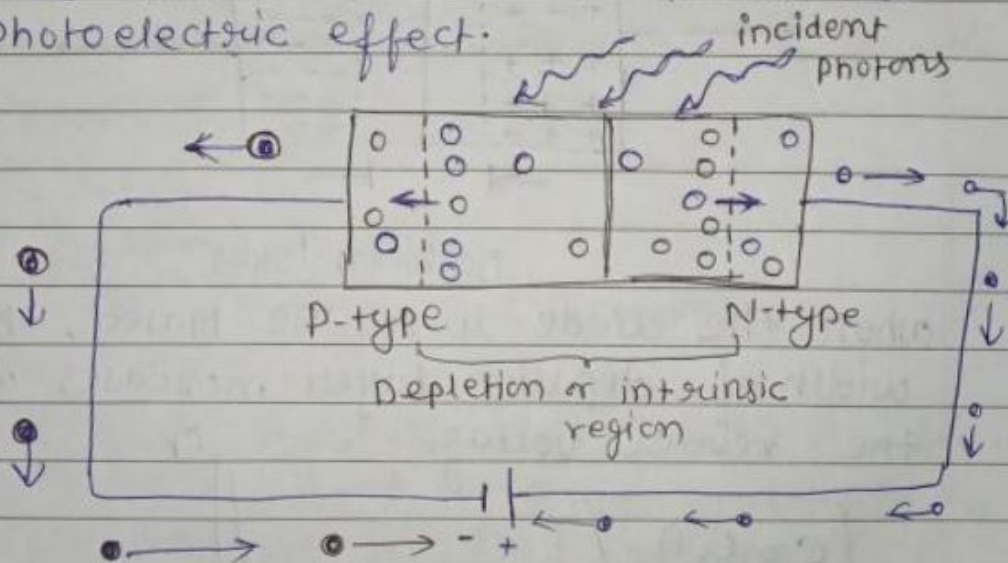 photoelectric effect.
incident
photons
P-type
N-type
Depletion or intrinsic
region
- +